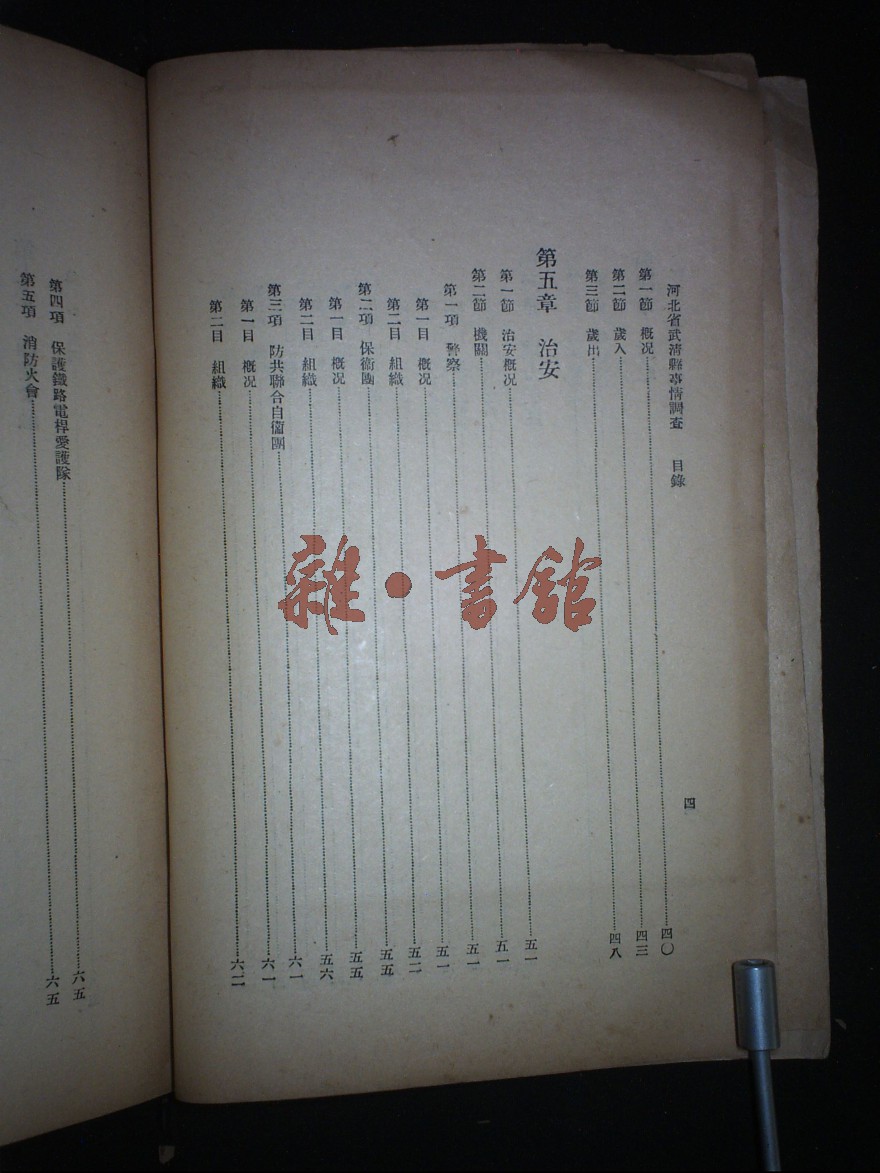 河北省武清縣事情調査　目錄　四
第一節　概况……四〇
第二節　歲入……四三
第三節　歲出……四八
第五章　治安
第一節　治安概况……五一
第二節　機關……五一
第一項　警察……五一
第一目　概况……五一
第二目　組織……五二
第二項　保衛團……五五
第一目　概况……五五
第二目　組織……五六
第三項　防共聯合自衞團……六一
第一目　概况……六一
第二目　組織……六二
第四項　保護鐵路電桿愛護隊……六五
第五項　消防火會……六五
雜·書館